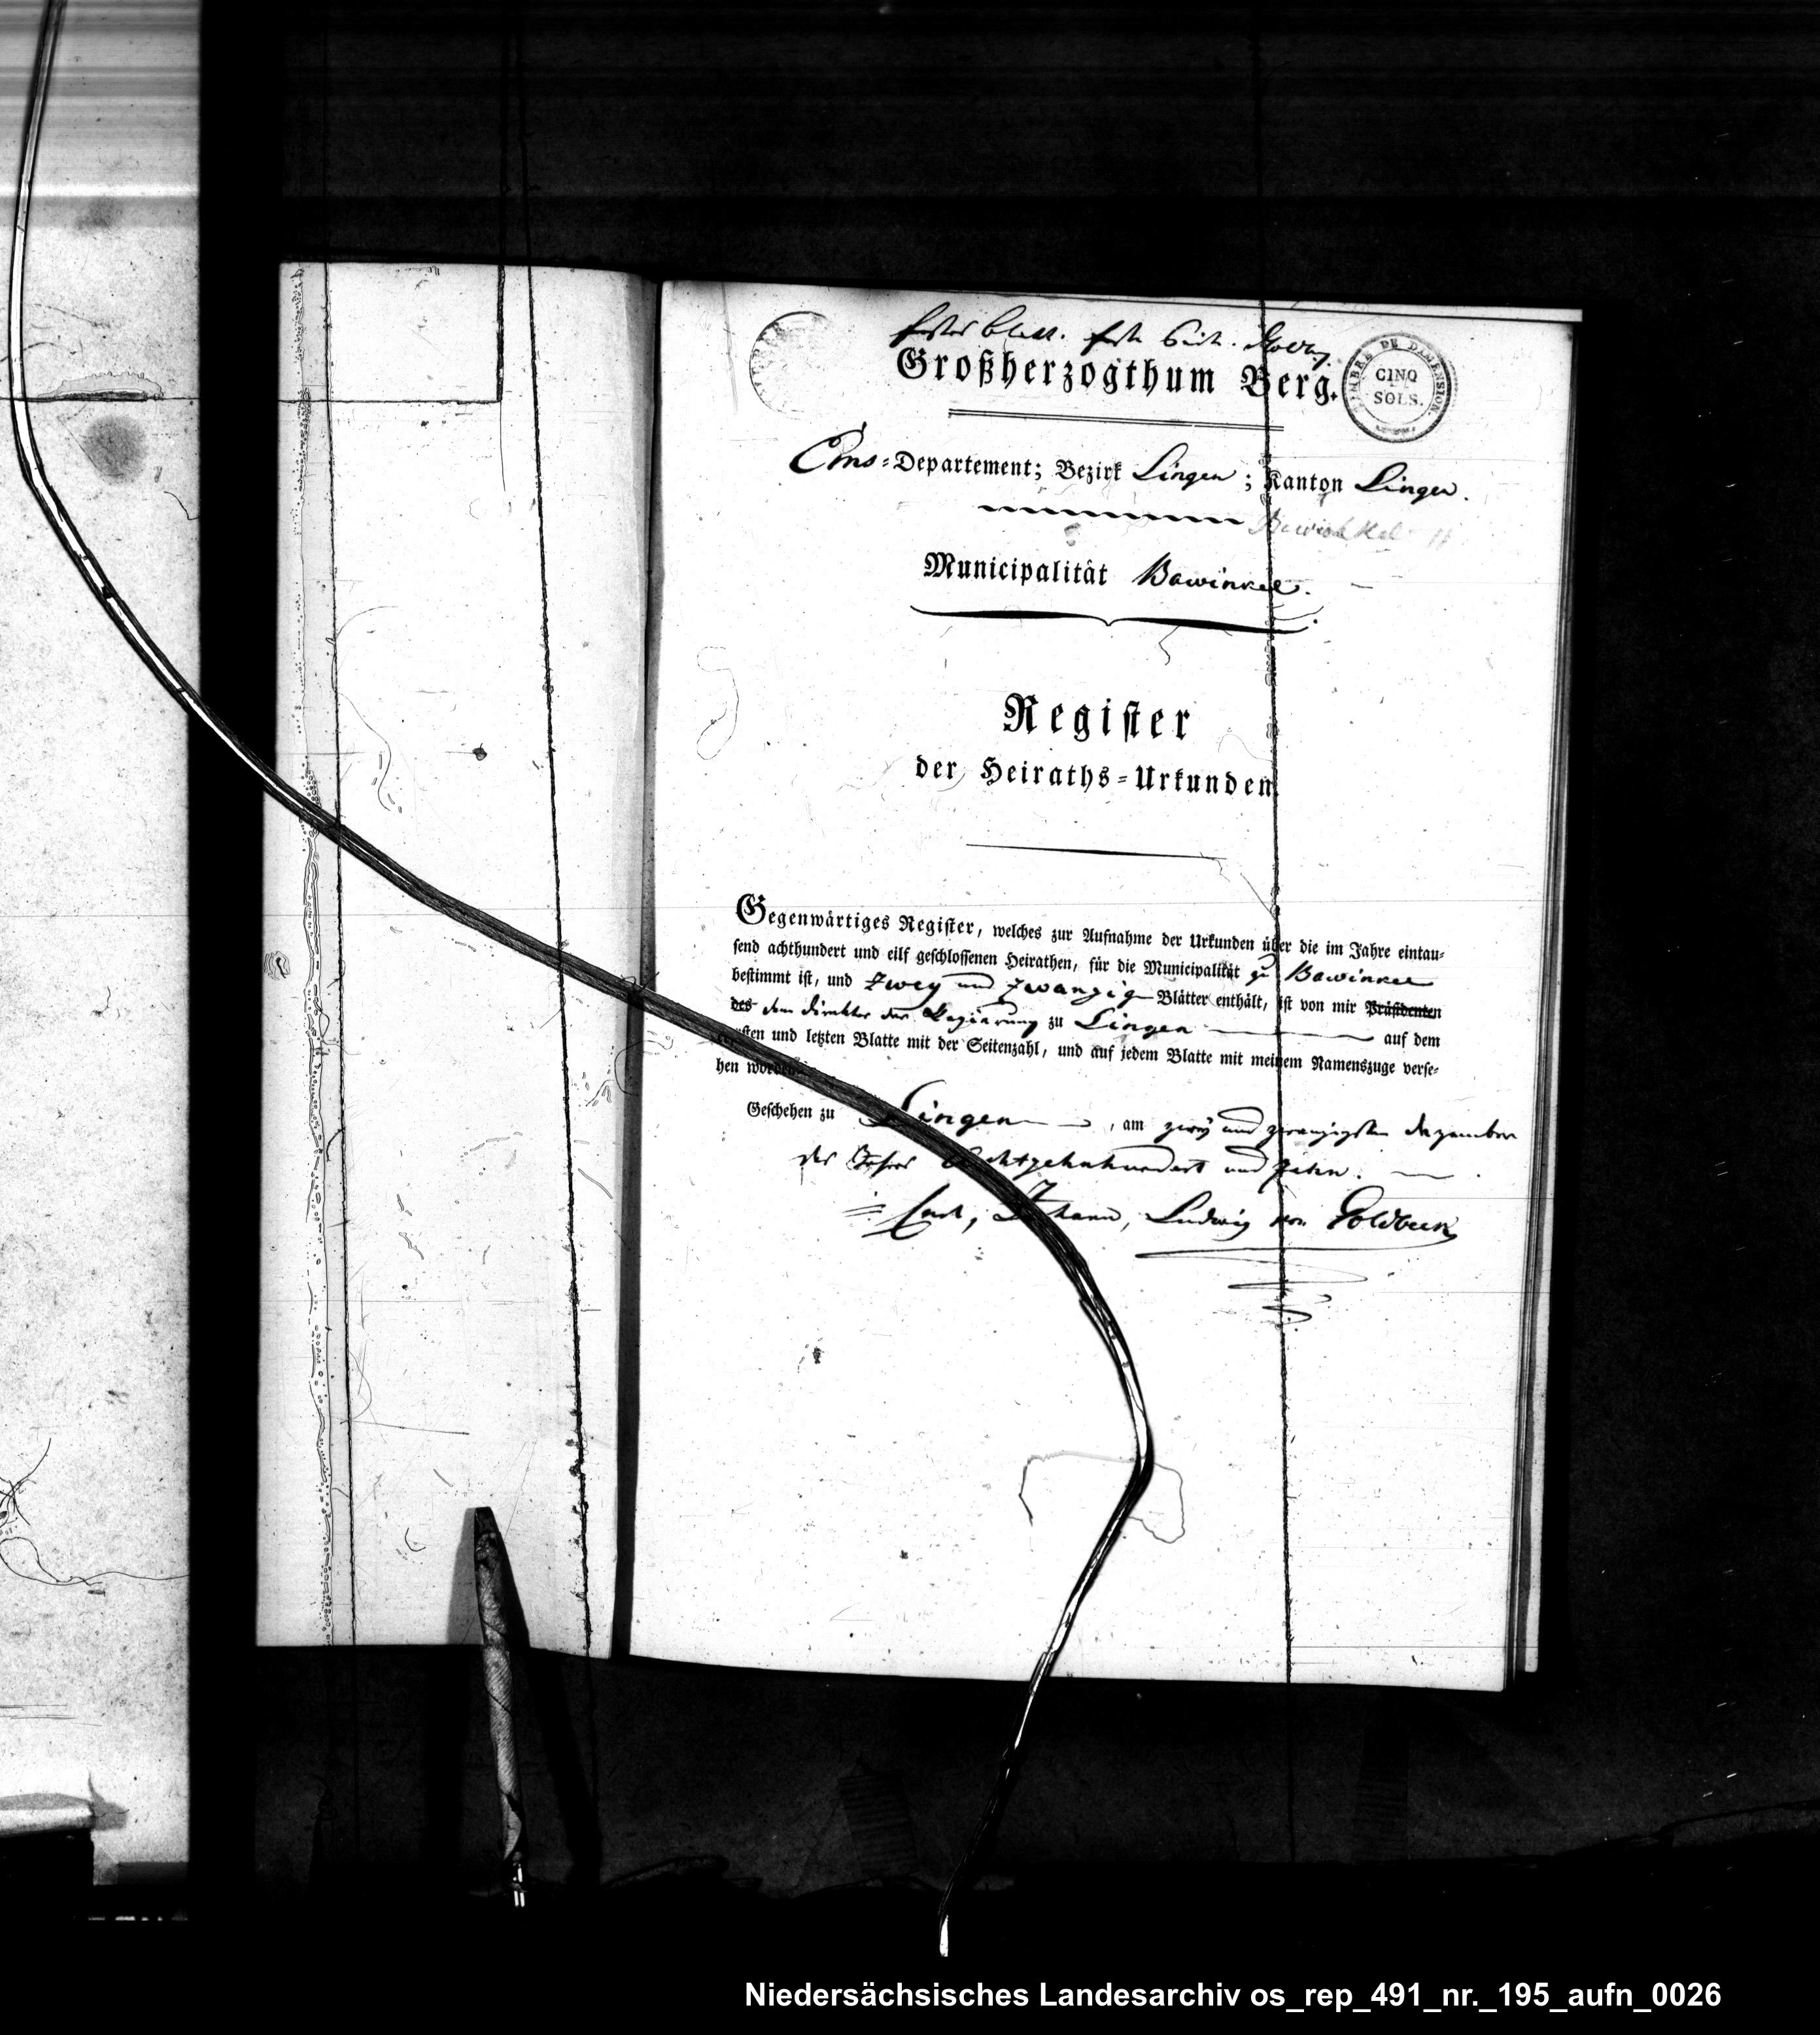 Erstes Blatt. Erste Seite. Goldbeck
Großherzogthum Berg.
TIMBRE DE DIMENSION.
CINQ
SOLS.
Ems=Departement; Bezirk Lingen; Kanton Lingen.
Bawinkel
Municipalität Bawinkel.
Register
der Heiraths=Urkunden
Gegenwärtiges Register, welches zur Aufnahme der Urkunden über die im Jahre eintau=
send achthundert und eilf geschlossenen Heirathen, für die Municipalität zu Bawinkel
bestimmt ist, und zwey und zwanzig Blätter enthält, ist von mir Präsidenten
des dem Direktor der Regierung zu Lingen auf dem
ersten und letzten Blatte mit der Seitenzahl, und auf jedem Blatte mit meinem Namenszuge verse=
hen worden.
Geschehen zu Lingen, am zwey und zwanzigsten Dezember
des Jahres Achtzehnhundert und Zehn.
Carl, Johann, Ludwig von Goldbeck
Niedersächsisches Landesarchiv os_rep_491_nr._195_aufn_0026